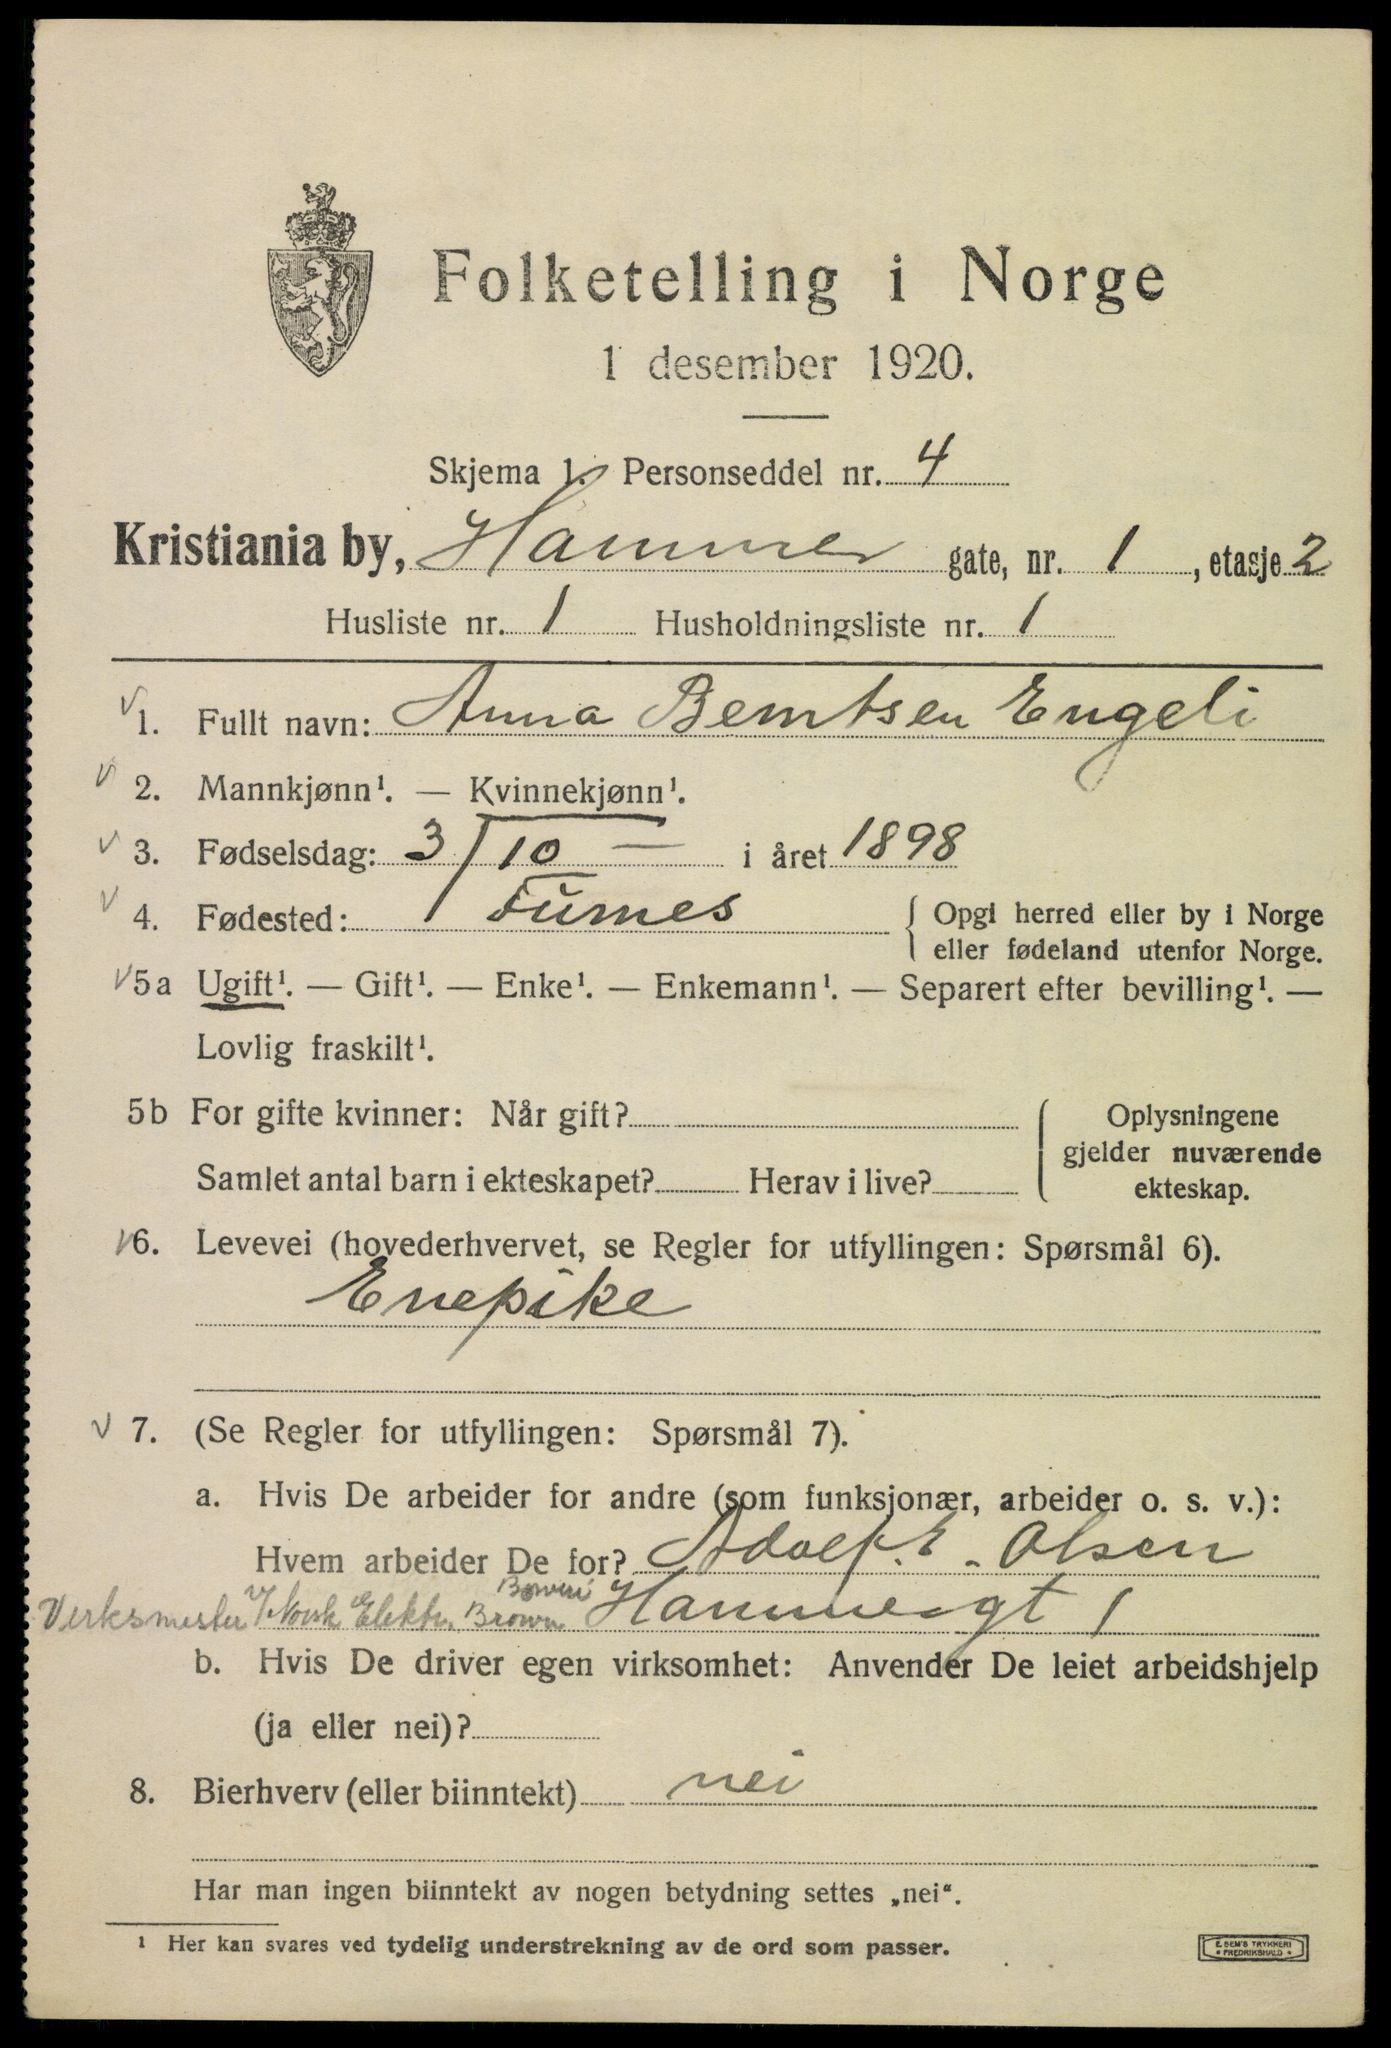 Folketelling i Norge
1 desember 1920.
Skjema 1. Personseddel nr. 4
Kristiania by, Hammer gate, nr. 1, etasje 2
Husliste nr. 1 Husholdningsliste nr. 1
1. Fullt navn: Anna Berntsen Engeli
2. Mannkjønn¹. — Kvinnekjønn¹.
3. Fødselsdag: 3/10 — i året 1898
4. Fødested: Furnes { Opgi herred eller by i Norge
eller fødeland utenfor Norge.
5a Ugift¹. — Gift¹. — Enke¹. — Enkemann¹. — Separert efter bevilling¹. —
Lovlig fraskilt¹.
5b For gifte kvinner: Når gift? { Oplysningene
gjelder nuværende
Samlet antal barn i ekteskapet? Herav i live? ekteskap.
6. Levevei (hovederhvervet, se Regler for utfyllingen: Spørsmål 6).
Enepike
7. (Se Regler for utfyllingen: Spørsmål 7).
a. Hvis De arbeider for andre (som funksjonær, arbeider o. s. v.):
Hvem arbeider De for? Adolf E. Olsen
Boveri
Verksmester v/ Norsk Elektr. Brown Hammergt 1
b. Hvis De driver egen virksomhet: Anvender De leiet arbeidshjelp
(ja eller nei)?
8. Bierhverv (eller biinntekt) nei
Har man ingen biinntekt av nogen betydning settes „nei“.
¹ Her kan svares ved tydelig understrekning av de ord som passer.
E. SEM'S TRYKKERI
• FREDRIKSHALD •